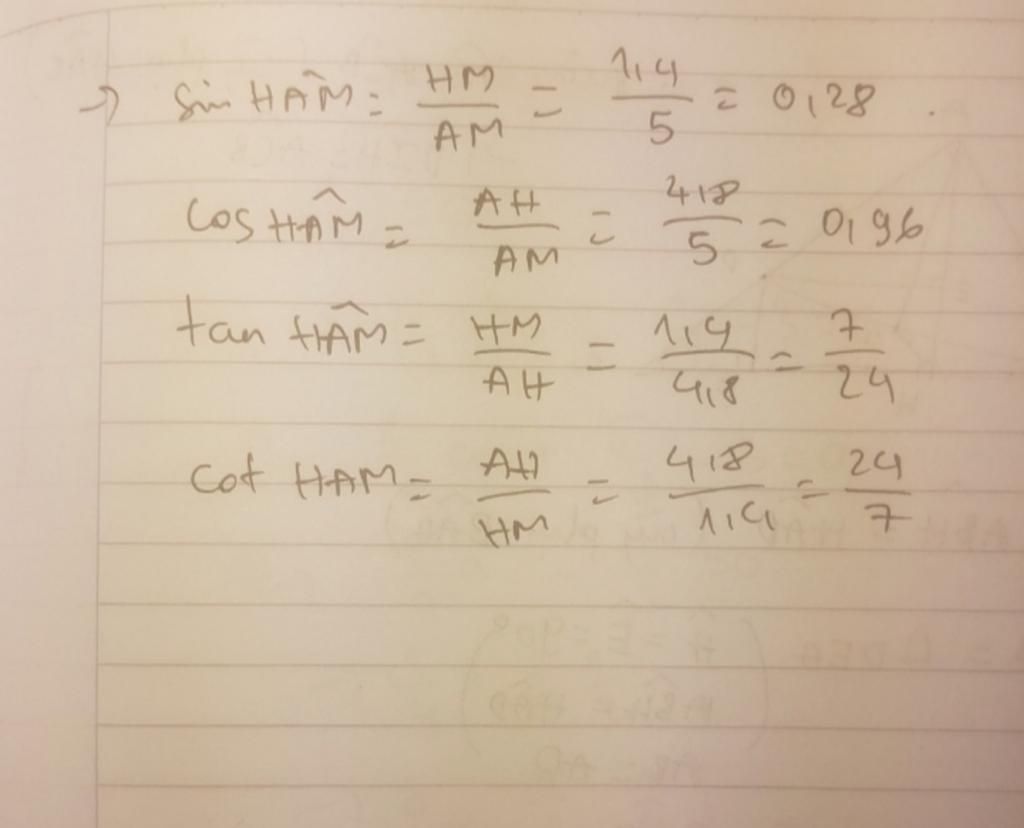 → sin HÂM = HM/AM = 1,4/5 = 0,28.
cos HÂM = AH/AM = 4,8/5 = 0,96
tan HÂM = HM/AH = 1,4/4,8 = 7/24
cot HAM = AH/HM = 4,8/1,4 = 24/7